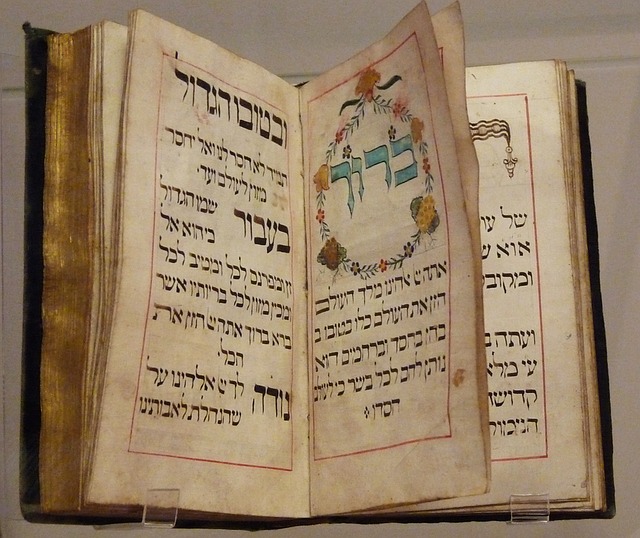 של
ועתה
ברוך
אתה יי אלהינו מלך העולם
הזן את העולם כלו בטובו ב
בחן בחסד וברחמים הוא
נותן לחם לכל בשר כי לעולם
חסדו:
ובטובו הגדול
תמיד לא חסר לנו ואל יחסר
מזון לעולם ועד
בעבור שמו הגדול
כי הוא אל
זן ומפרנס לכל ומטיב לכל
ומכין מזון לכל בריותיו אשר
ברא ברוך אתה יי הזן את
הכל
נודה לך יי אלהינו על
שהנחלת לאבותינו